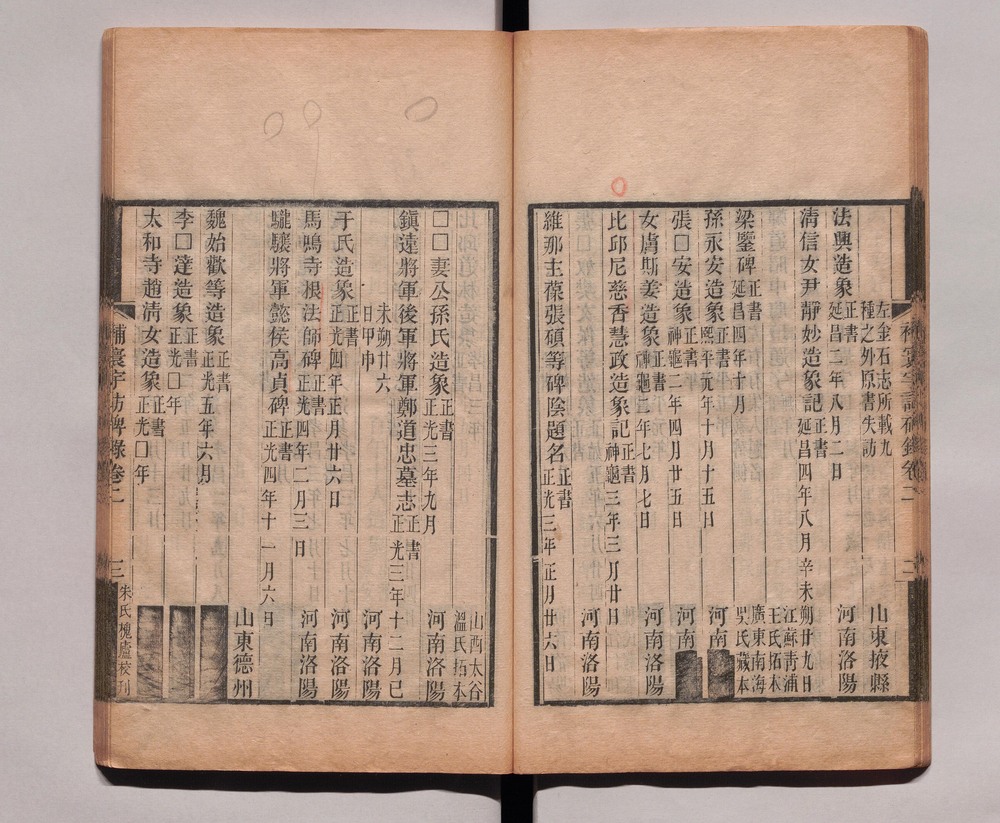 左金石志所載九
種之外原書失訪
山東掖縣
法興造象 正書
延昌二年八月二日
河南洛陽
清信女尹靜妙造象記 延昌四年八月辛未朔廿九日
江蘇青浦
王氏拓本
梁鑒碑 正書
延昌四年十月
廣東南海
吳氏藏本
孫永安造象 正書
熙平元年十月十五日
河南
張□安造象 正書
神龜二年四月廿五日
河南
女虜斯姜造象 正書
神龜二年七月七日
河南洛陽
比邱尼慈香慧政造象記 正書
神龜三年三月廿日
河南洛陽
維那主葆張碩等碑陰題名 正書
正光三年正月廿六日
山西太谷
溫氏拓本
□□妻公孫氏造象 正書
正光三年九月
河南洛陽
鎮遠將軍後軍將軍鄭道忠墓志 正書
正光三年十二月己
未朔廿六
日甲申
河南洛陽
于氏造象 正書
正光四年正月廿六日
河南洛陽
馬鳴寺根法師碑 正書
正光四年二月三日
河南洛陽
驣驤將軍懿侯高貞碑 正書
正光四年十一月六日
山東德州
魏始歡等造象 正書
正光五年六月
李□達造象 正書
正光□年
太和寺趙清女造象 正書
正光□年
補寰宇訪碑錄卷二
三
朱氏槐廬校刊